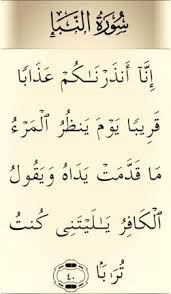 سُورَةُ النَّبَإِ
إِنَّآ أَنذَرْنَـٰكُمْ عَذَابًا
قَرِيبًا يَوْمَ يَنظُرُ ٱلْمَرْءُ
مَا قَدَّمَتْ يَدَاهُ وَيَقُولُ
ٱلْكَافِرُ يَـٰلَيْتَنِى كُنتُ
تُرَٰبًۢا ٤٠